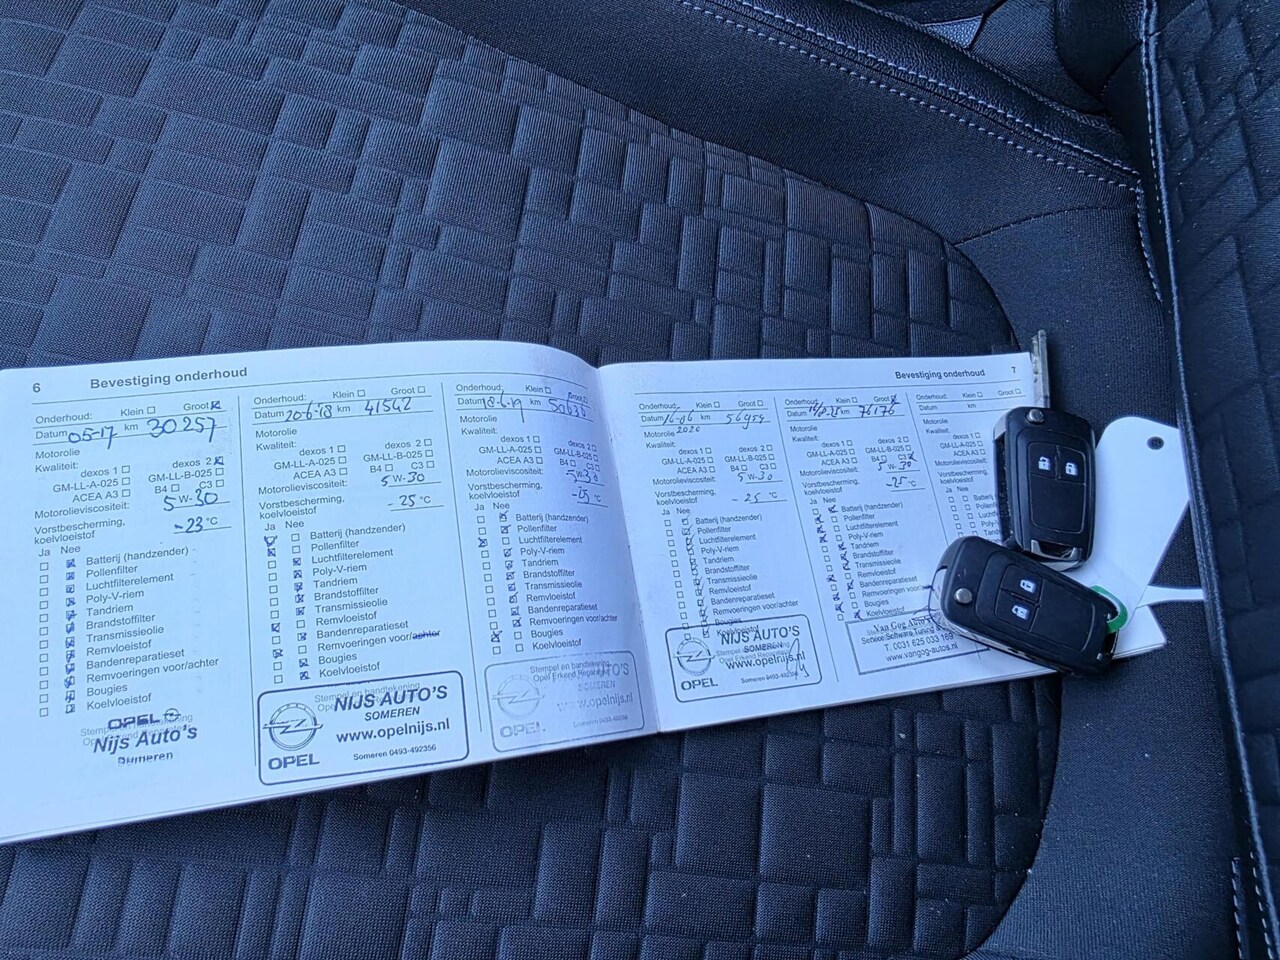 6 Bevestiging onderhoud
Onderhoud: Klein Groot
Datum 05-17 km 30257
Motorolie
Kwaliteit:
dexos 1 dexos 2
GM-LL-A-025 GM-LL-B-025
ACEA A3 B4 C3
Motorolieviscositeit: 5W-30
Vorstbescherming, koelvloeistof -23 °C
Ja Nee
Batterij (handzender)
Pollenfilter
Luchtfilterelement
Poly-V-riem
Tandriem
Brandstoffilter
Transmissieolie
Remvloeistof
Bandenreparatieset
Remvoeringen voor/achter
Bougies
Koelvloeistof
OPEL
Nijs Auto's
Someren
Onderhoud: Klein Groot
Datum 20-6-18 km 41542
Motorolie
Kwaliteit:
dexos 1 dexos 2
GM-LL-A-025 GM-LL-B-025
ACEA A3 B4 C3
Motorolieviscositeit: 5W-30
Vorstbescherming, koelvloeistof -25 °C
Ja Nee
Batterij (handzender)
Pollenfilter
Luchtfilterelement
Poly-V-riem
Tandriem
Brandstoffilter
Transmissieolie
Remvloeistof
Bandenreparatieset
Remvoeringen voor/achter
Bougies
Koelvloeistof
Stempel en handtekening
NIJS AUTO'S
SOMEREN
www.opelnijs.nl
OPEL Someren 0493-492356
Onderhoud: Klein Groot
Datum 18-6-19 km 50636
Motorolie
Kwaliteit:
dexos 1 dexos 2
GM-LL-A-025 GM-LL-B-025
ACEA A3 B4 C3
Motorolieviscositeit: 5W-30
Vorstbescherming, koelvloeistof -25 °C
Ja Nee
Batterij (handzender)
Pollenfilter
Luchtfilterelement
Poly-V-riem
Tandriem
Brandstoffilter
Transmissieolie
Remvloeistof
Bandenreparatieset
Remvoeringen voor/achter
Bougies
Koelvloeistof
Stempel en handtekening
SOMEREN
OPEL
Bevestiging onderhoud 7
Onderhoud: Klein Groot
Datum 16-06 2020 km 56954
Motorolie
Kwaliteit:
dexos 1 dexos 2
GM-LL-A-025 GM-LL-B-025
ACEA A3 B4 C3
Motorolieviscositeit: 5W-30
Vorstbescherming, koelvloeistof -25 °C
Ja Nee
Batterij (handzender)
Pollenfilter
Luchtfilterelement
Poly-V-riem
Tandriem
Brandstoffilter
Transmissieolie
Remvloeistof
Bandenreparatieset
Remvoeringen voor/achter
Bougies
Koelvloeistof
NIJS AUTO'S
SOMEREN
www.opelnijs.nl
OPEL
Onderhoud: Klein Groot
Datum km 76176
Motorolie
Kwaliteit:
dexos 1 dexos 2
GM-LL-A-025 GM-LL-B-025
ACEA A3 B4 C3
Motorolieviscositeit: 5W-30
Vorstbescherming, koelvloeistof -25 °C
Ja Nee
Batterij (handzender)
Pollenfilter
Luchtfilterelement
Poly-V-riem
Tandriem
Brandstoffilter
Transmissieolie
Remvloeistof
Bandenreparatieset
Remvoeringen voor/achter
Bougies
Koelvloeistof
Van Gog
T. 0031 625 033 169
www.vangog-autos.nl
Onderhoud: Klein Groot
Datum km
Motorolie
Kwaliteit:
dexos 1
GM-LL-A-025
ACEA A3
Vorstbescherming, koelvloeistof
Ja Nee